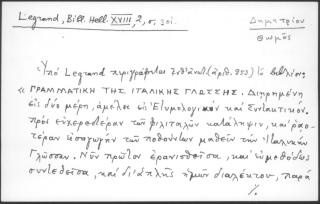 Legrand, Bibl. Hell. XVIII, 2, σ. 301.
Δημητρίου
Θωμᾶς
Ὑπὸ Legrand περιγράφεται ἐνθ' ἀνωτ. (ἀριθ. 953) τὸ βιβλίον:
« ΓΡΑΜΜΑΤΙΚΗ ΤΗΣ ΙΤΑΛΙΚΗΣ ΓΛΩΣΣΗΣ. Διῃρημένη
εἰς δύο μέρη, ἀμέλει εἰς Ἐτυμολογικὸν καὶ Συντακτικόν.
πρὸς εὐχερεστέραν τῶν φιλιταλῶν κατάληψιν, καὶ ῥᾳο-
τέραν εἰσαγωγὴν τῶν ποθούντων μαθεῖν τὴν Ἰταλικὴν
Γλῶσσαν. Νῦν πρῶτον ἐρανισθεῖσα, καὶ εὐμεθόδως
συντεθεῖσα, καὶ δι' ἁπλῆς ἡμῶν διαλέκτου, παρὰ
./.